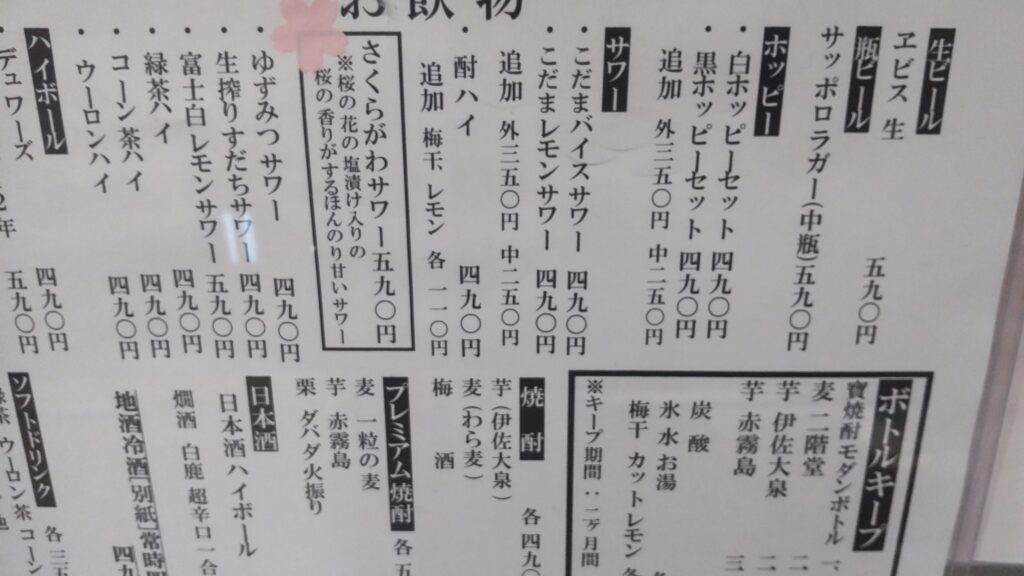 お飲物
生ビール
ヱビス 生 五九〇円
瓶ビール
サッポロラガー(中瓶)五九〇円
ホッピー
・白ホッピーセット 四九〇円
・黒ホッピーセット 四九〇円
追加 外三五〇円 中二五〇円
サワー
・こだまバイスサワー 四九〇円
・こだまレモンサワー 四九〇円
追加 外三五〇円 中二五〇円
・酎ハイ 四九〇円
追加 梅干、レモン 各一一〇円
さくらがわサワー五九〇円
※桜の花の塩漬け入りの
桜の香りがするほんのり甘いサワー
・ゆずみつサワー 四九〇円
・生搾りすだちサワー 四九〇円
・富士白レモンサワー 五九〇円
・緑茶ハイ 四九〇円
・コーン茶ハイ 四九〇円
・ウーロンハイ 四九〇円
ハイボール
デュワーズ 四九〇円
五九〇円
ボトルキープ
寶焼酎モダンボトル
麦 二階堂
芋 伊佐大泉
芋 赤霧島
炭酸
氷 水 お湯
梅干 カットレモン 各
※キープ期間:二ヶ月間
焼酎
芋(伊佐大泉) 各四九〇
麦(わら麦)
梅酒
プレミアム焼酎 各五
麦 一粒の麦
芋 赤霧島
栗 ダバダ火振り
日本酒
日本酒ハイボール
燗酒 白鹿 超辛口一合
地酒冷酒[別紙]常時
ソフトドリンク 各三五
緑茶 ウーロン茶 コーン